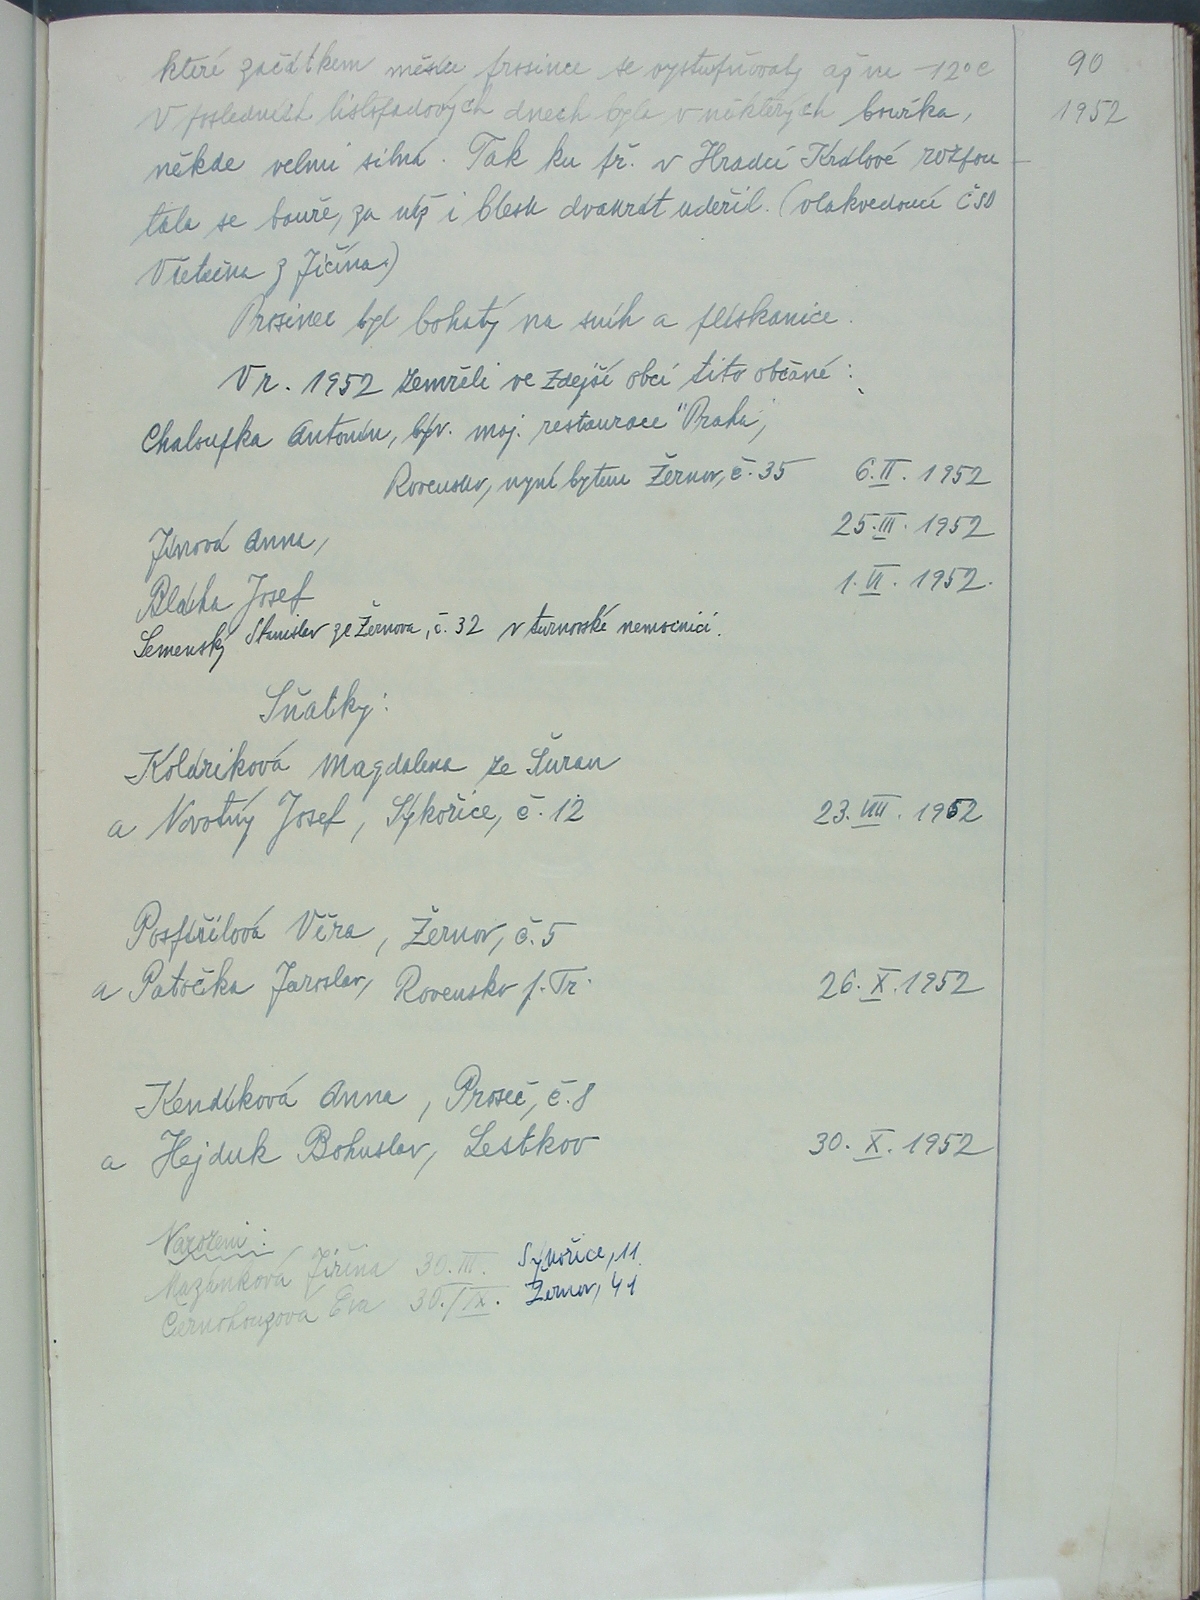 které začátkem měsíce prosince se vystupňovaly až na -12°C
90
V posledních listopadových dnech byla v některých bouřka,
1952
někde velmi silná. Tak ku př. v Hradci Králové rozpou-
tala se bouře, za níž i blesk dvakrát udeřil. (vlakvedoucí ČSD
Všetečka z Jičína.)
Prosinec byl bohatý na sníh a plískanice.
V r. 1952 zemřeli ve zdejší obci tito občané:
Chaloupka Antonín, býv. maj. restaurace "Praha",
Rovensko, nyní bytem Žernov, č. 35 6.II. 1952
Jínová Anna, 25.III. 1952
Blacha Josef 1.VI. 1952.
Semenský Stanislav ze Žernova, č. 32 v turnovské nemocnici.
Sňatky:
Koldriková Magdalena ze Šuran
a Novotný Josef, Sýkořice, č. 12 23.VIII. 1952
Pospíšilová Věra, Žernov, č. 5
a Patočka Jaroslav, Rovensko p. Tr. 26. X. 1952
Kendíková Anna, Proseč, č. 8
a Hejduk Bohuslav, Lestkov 30. X. 1952
Narozeni:
Mazánková Jiřina 30.III. Sýkořice, 11.
Černohouzová Eva 30./IX. Žernov, 41